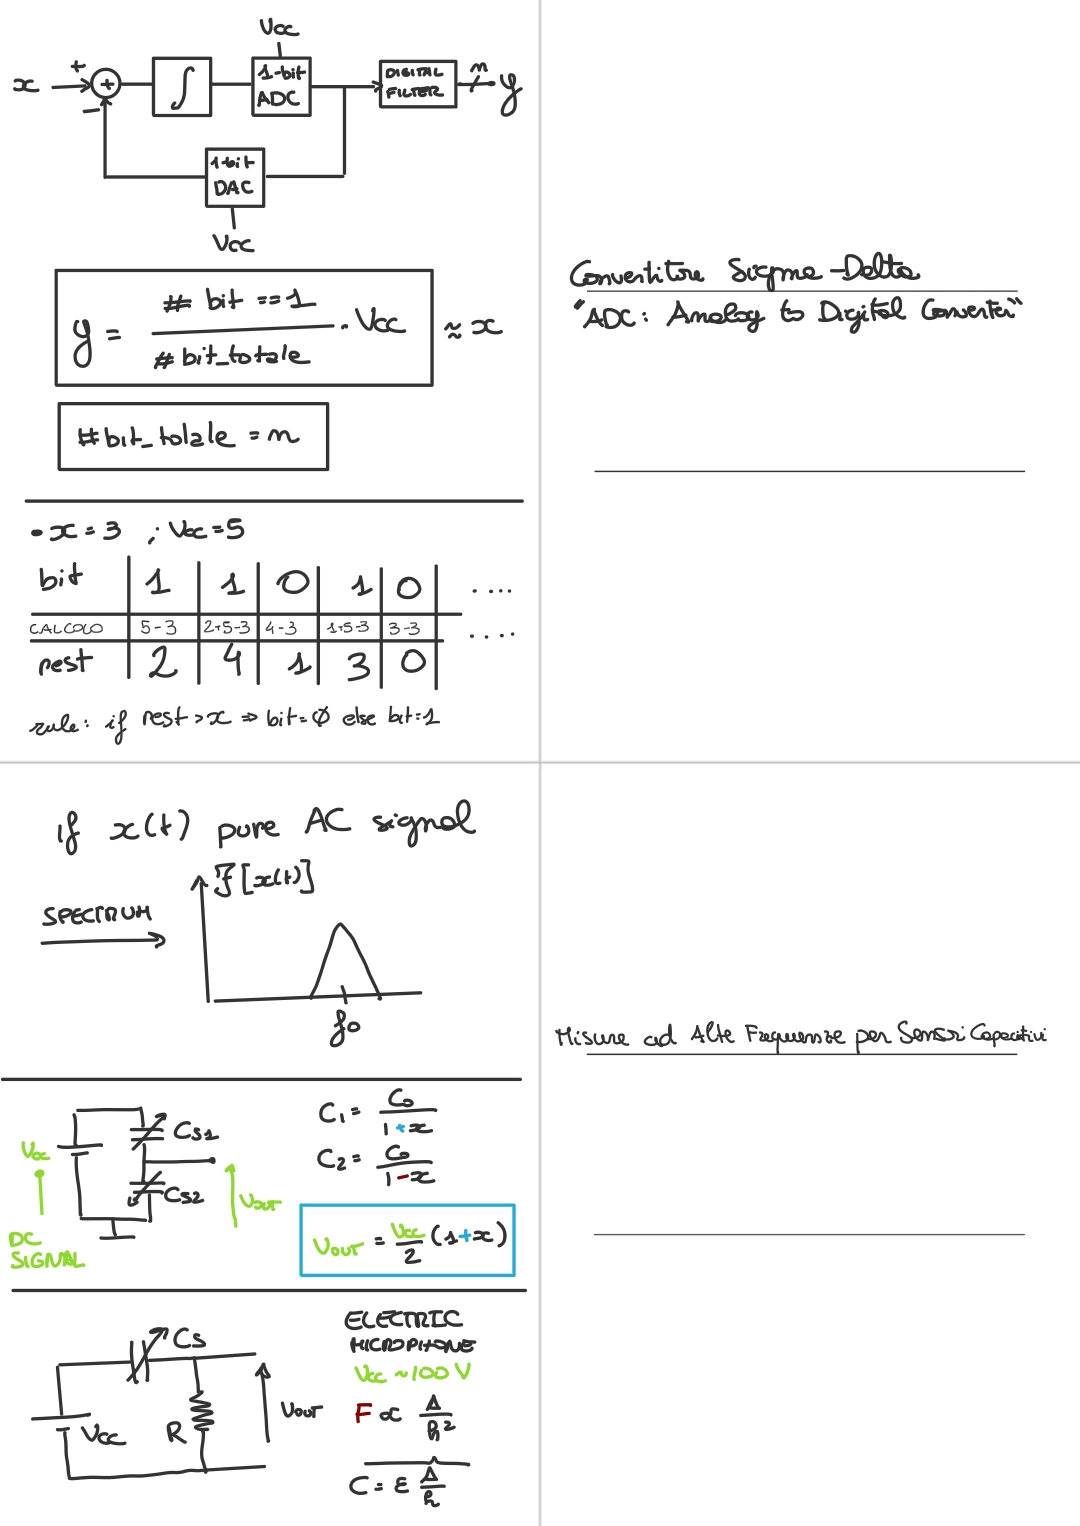 Vcc
x + + ∫ 1-bit ADC DIGITAL FILTER n y
−
1-bit DAC
Vcc
y = # bit == 1 / # bit_totale · Vcc ≈ x
#bit_totale = n
Convertitore Sigma-Delta
"ADC: Analog to Digital Converter"
• x = 3 ; Vcc = 5
bit 1 1 0 1 0 ....
CALCOLO 5-3 2+5-3 4-3 1+5-3 3-3 ....
rest 2 4 1 3 0
rule: if rest > x => bit = 0 else bit = 1
if x(t) pure AC signal
F[x(t)]
SPECTRUM
f0
Misure ad Alte Frequenze per Sensori Capacitivi
C1 = C0 / 1 + x
C2 = C0 / 1 - x
Vcc
CS1
CS2
Vout
DC
SIGNAL
VOUT = Vcc / 2 (1 + x)
ELECTRIC
MICROPHONE
Vcc ~ 100 V
F ∝ A / h²
C = ε A / h
CS
Vcc
R
VOUT